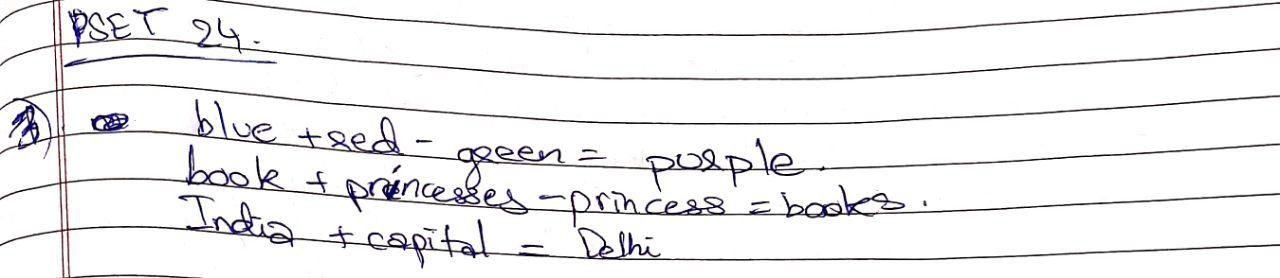 PSET 24.
3)
blue + red - green = purple.
book + princesses - princess = books.
India + capital = Delhi